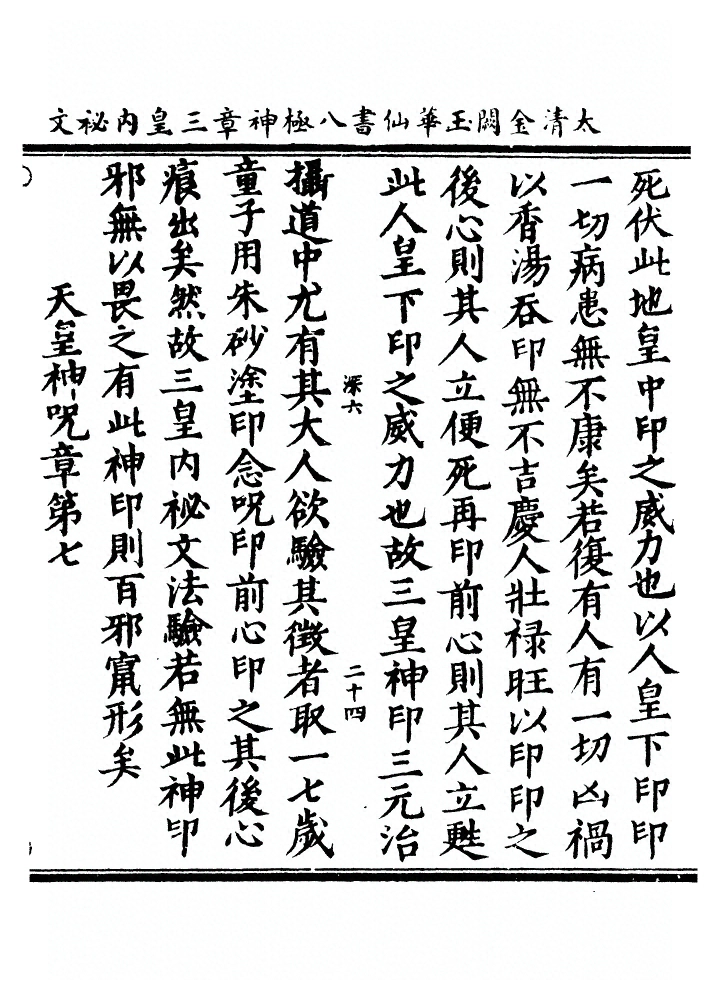 太清金闕玉華仙書八極神章三皇內祕文
死伏此地皇中印之威力也以人皇下印印
一切病患無不康矣若復有人有一切凶禍
以香湯吞印無不吉慶人壯祿旺以印印之
後心則其人立便死再印前心則其人立甦
此人皇下印之威力也故三皇神印三元治
深六
二十四
攝道中尤有其大人欲驗其徵者取一七歲
童子用朱砂塗印念呪印前心印之其後心
痕出矣然故三皇內祕文法驗若無此神印
邪無以畏之有此神印則百邪竄形矣
天皇神呪章第七